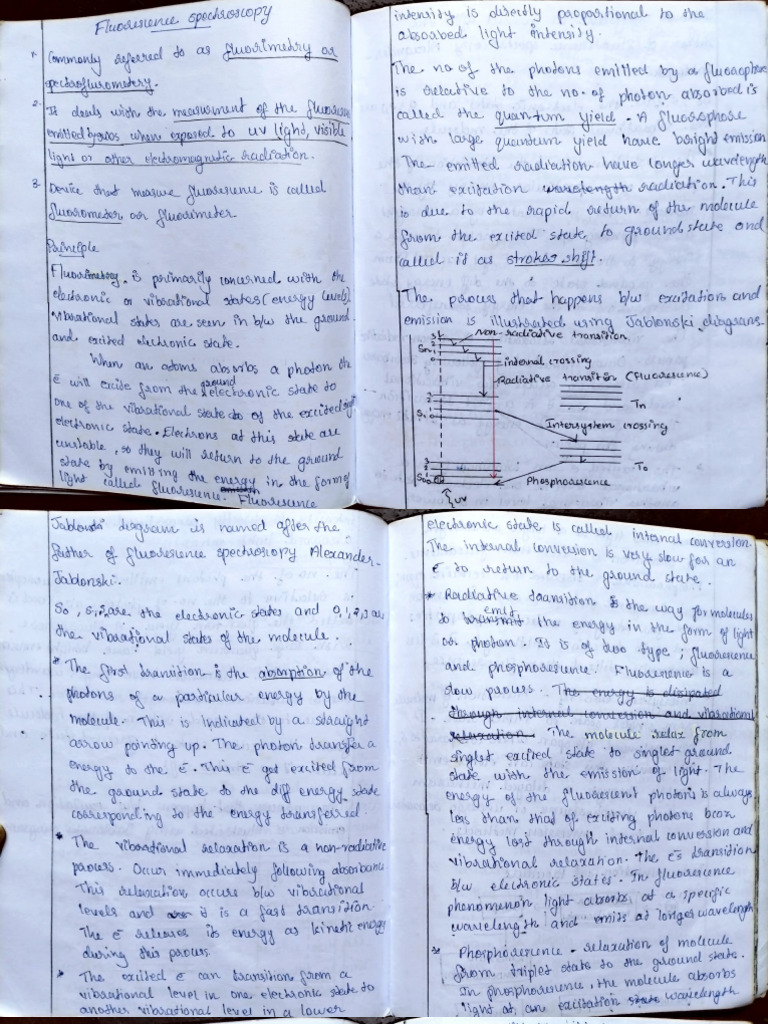 Fluorescence spectroscopy
1. Commonly referred to as fluorimetry or
spectroflurometry.
2. It deals with the measurment of the fluorescence
emitted when exposed to uv light, visible
light or other electromagnetic radiation.
3. Device that measure fluoresience is called
fluorometer or fluorimeter
Principle
Fluorimetry is primarily concerned with the
electronic or vibrational states (energy levels).
Vibrational states are seen in b/w the ground
and excited electronic state.
When an atoms absorbs a photon the
ē will excite from the ground electronic state to
one of the vibrational state of the excited
electronic state. Electrons at this state are
unstable, so they will return to the ground
state by emitting the energy in the form of
light called fluoresence. Fluoresence
intensity is directly proportional to the
absorbed light intensity.
The no of the photons emitted by a fluorophore
is relative to the no. of photon absorbed is
called the quantum yield. A fluorophore
with large quantum yield have bright emission
The emitted radiation have longer wavelength
than excitation wavelength radiation. This
is due to the rapid return of the molecule
from the excited state to ground state and
called it as strokes shift.
The process that happens b/w excitation and
emission is illustrated using Jablonski diagrams
Non-radiative transition
3
2
1
0
Sn
internal crossing
Radiative transition (Fluoresence)
Tn
S1
Intersystem crossing
T0
S0
Phosphoresence
UV
Jablonski diagram is named after the
father of fluoresence spectroscopy Alexander-
Jablonski.
So, S1, S2 are the electronic states and 0,1,2,3 are
the vibrational states of the molecule.
* The first transition is the absorption of the
photons of a particular energy by the
molecule. This is indicated by a straight
arrow pointing up. The photon transfer a
energy to the ē. This ē get excited from
the ground state to the diff energy state
corresponding to the energy transferred.
* The vibrational relaxation is a non-radiative
process. Occur immediately following absorbance
This relaxation occurs b/w vibrational
levels and it is a fast transition
The ē releases its energy as kinetic energy
during this process
* The excited ē can transition from a
vibrational level in one electronic state to
another vibrational level in a lower
electronic state is called internal conversion.
The internal conversion is very slow for an
ē to return to the ground state.
* Radiative transition is the way for molecules
to emit the energy in the form of light
or photon. It is of two type; fluoresence
and phosphoresence. Fluoresence is a
slow process. The energy is dissipated
through internal conversion and vibrational
relaxation. The molecule relax from
singlet excited state to singlet ground
state with the emission of light. The
energy of the fluorescent photons is always
less than that of exciting photons bcoz
energy lost through internal conversion and
vibrational relaxation. The ēs transition
b/w electronic states. In fluoresence
phenomenon light absorbs at a specific
wavelength and emits at longer wavelength
* Phosphoresence - relaxation of molecule
from triplet state to the ground state.
In phosphoresence, the molecule absorbs
light at an excitation state wavelength